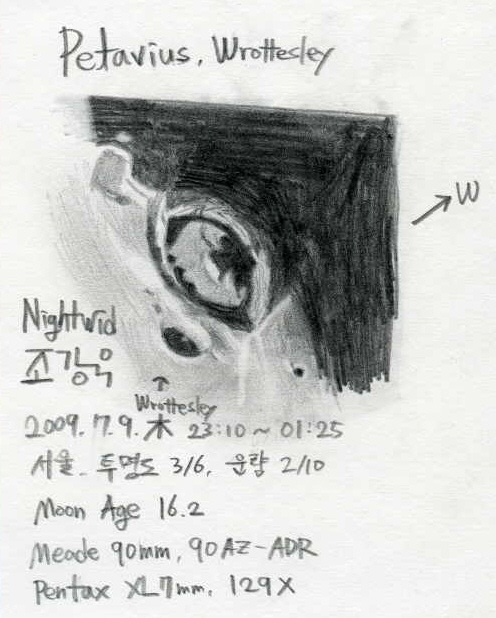 Petavius, Wrottesley
W
Nightwid
조강욱
Wrottesley
2009. 7. 9. 木 23:10 ~ 01:25
서울. 투명도 3/6, 운량 2/10
Moon Age 16.2
Meade 90mm, 90AZ-ADR
Pentax XL7mm, 129X